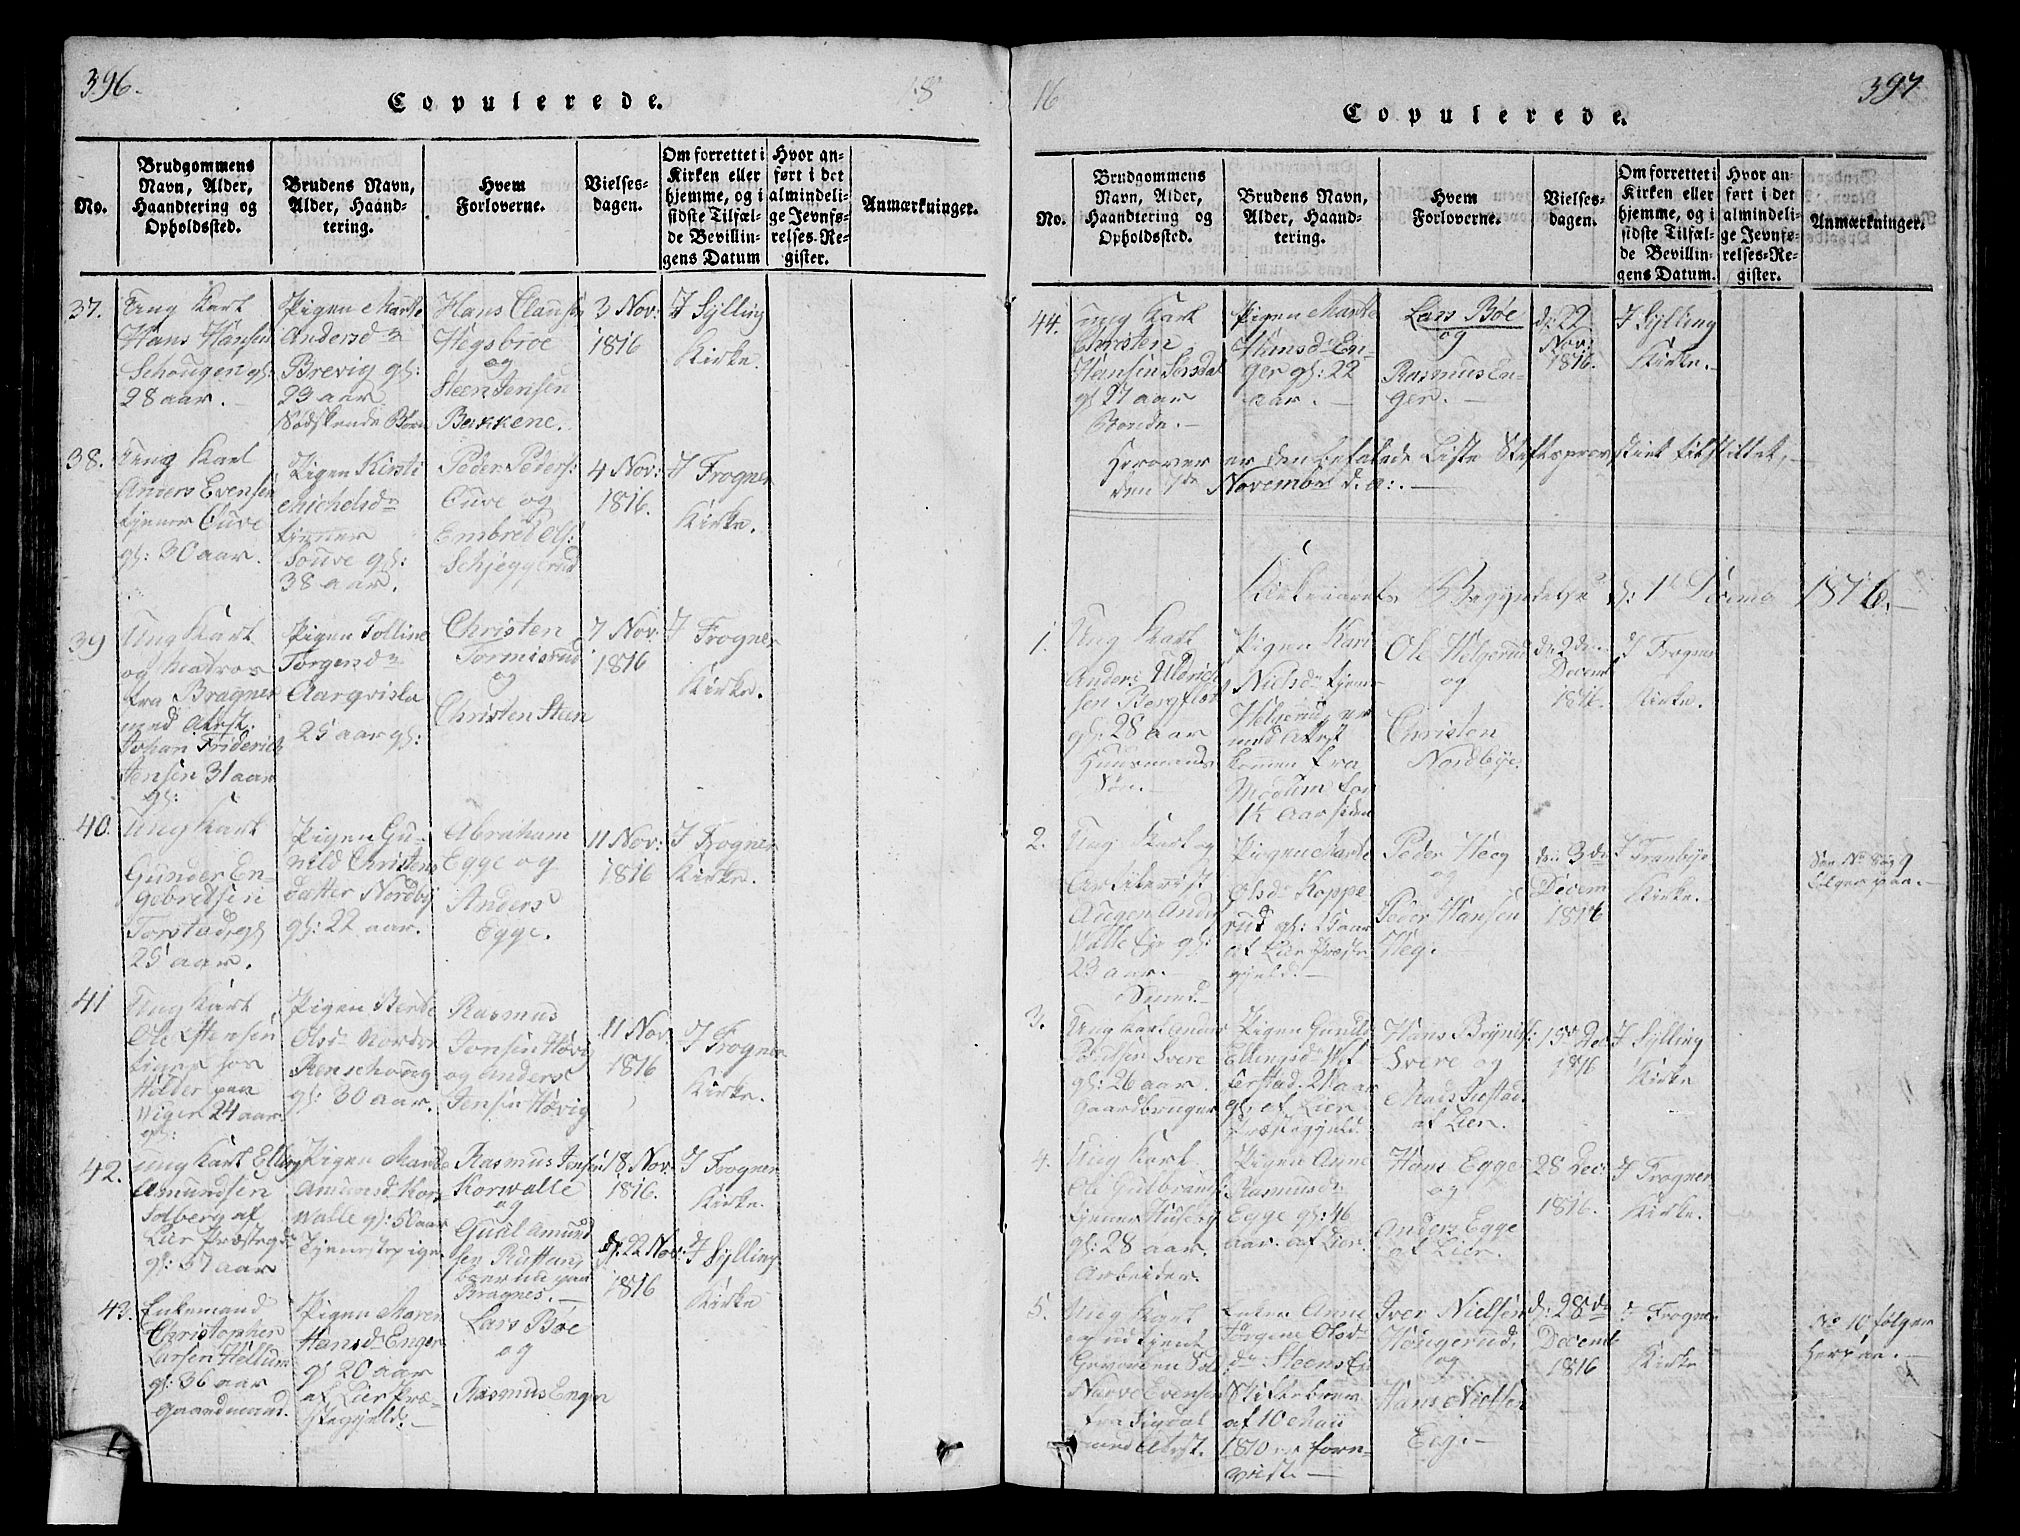 396.
Copulerede.
18
No.
Brudgommens
Navn, Alder,
Haandtering og
Opholdssted.
Brudens Navn,
Alder, Haand-
tering.
Hvem
Forloverne.
Vielses-
dagen.
Om forrettet i
Kirken eller
hjemme, og i
sidste Tilfæl-
de Bevillin-
gens Datum
Hvor an-
ført i det
almindeli-
ge Jevnfø-
relses-Re-
gister.
Anmærkninger.
37.
Ung Karl
Hans Hansen
Schougen gl:
28 aar.
Pigen Marthe
Andersd
Brevig gl:
23 aar
Hans Clausen
Hegsbroe
og
Steen Jensen
Bakkene.
3 Nov:
1816
I Sylling
Kirke.
38.
Ung Karl
Anders Evensen
tjener Ouve
gl: 30 aar.
Pigen Kirsti
Michelsd
tjener
Souve gl:
38 aar.
Peder Peders:
Ouve og
Embred Ols:
Schjeggerud
4 Nov:
1816.
I Frogner
Kirke.
39
Ung Karl
og Matros
fra Bragnes
med Attest.
Johan Friderich
Jensen 31 aar
gl:
Pigen Jolline
Jørgensd
Aarqvisla
25 aar gl:
Christen
Tormisrud
og
Christen Steen
7 Nov:
1816
I Frogner
Kirke.
40.
Ung Karl
Gunder En-
gebretsen
Torstad, gl
25 aar.
Pigen Gu-
nild Christens
datter Nordby
gl: 22 aar.
Abraham
Egge og
Anders
Egge.
11 Nov:
1816
I Frogner
Kirke.
41
Ung Karl
Ole Stensen
tjener hos
Holder paa
Wiger 24 aar
gl:
Pigen Berthe
Olsd Nordre
Renschoug
gl: 30 aar.
Rasmus
Jonsen Høvig
og Anders
Jensen Høvig
11 Nov
1816
I Frogner
Kirke.
42.
Ung Karl Elling
Amundsen
Solberg af
Lier Præstegd
gl: 37 aar
Pigen Marthe
Amunsd Kor
Walle gl: 50 aar
Tjenestepige
Rasmus Jensen
Korwalle
og
Gual Amund
sen Ruttans
boende paa
Bragnes.
18 Nov:
1816.
I Frogner
Kirke.
43.
Enkemand
Christopher
Larsen Hellum
gl: 36 aar
Gaardmand.
Pigen Maren
Hansd Enger
gl 20 aar
af Lier Præ-
stegjeld.
Lars Bøe
og
Rasmus Enger
d. 22 Nov:
1816
I Sylling
Kirke
16
397
Copulerede.
No.
Brudgommens
Navn, Alder,
Haandtering og
Opholdssted.
Brudens Navn,
Alder, Haand-
tering.
Hvem
Forloverne.
Vielses-
dagen.
Om forrettet i
Kirken eller
hjemme, og i
sidste Tilfæl-
de Bevillin-
gens Datum.
Hvor an-
ført i det
almindeli-
ge Jevnfø-
relses-Re-
gister.
Anmærkninger.
44.
Ung Karl
Christen
Hansen Sørsdal
gl 27 aar
Bonde.
Pigen Marthe
Hansd En-
ger gl: 22
aar.
Lars Bøe
og
Rasmus En-
ger.
d. 22
Nov:
1816.
I Sylling
Kirke.
Herover er den befalede Liste Stiftsprovstiet tilstillet,
den 7de November d. a:.
Kirkeaarets Begyndelse d: 1te Decemb 1816.
1.
Ung Karl
Anders Uldrich
sen Bergflot
gl: 28 aar
Huusmands
Søn.
Pigen Kari
Nielsd tjener
Helgerud, er
med Attest
kommen fra
Modum for
1½ Aar siden
Ole Helgerud
og
Christen
Nordbye.
d. 2den
Decemb
1816.
I Frogner
Kirke.
2.
Ung Karl og
Artilerist
Augen Anders
Walle Eje gl:
23 aar.
Smed
Pigen Marthe
Olsd Koppe
rud gl: 25 aar
af Lier Præste
gjeld.
Peder Heeg
og
Peder Hansen
Heg.
den 3de
Decem
1816
I Tranbye
Kirke.
See No 8 og 9
følger paa.
3.
Ung Karl Anders
Knudsen Svere
gl: 26 aar.
Gaardbruger
Pigen Gunild
Ellingsd Hef
terstad. 21 aar
gl. af Lier
Præstegjeld.
Hans Brynels:
Svere og
Mads Justad
af Lier.
15de Dec
1816
I Sylling
Kirke
4.
Ung Karl
Ole Gulbrands:
tjener Huseby
gl: 28 aar.
Arbeider.
Pigen Anne
Rasmusd
Egge gl: 46
aar. af Lier.
Hans Egge
og
Anders Egge
af Lier.
28 Dec:
1816.
I Frogner
Kirke.
5.
Ung Karl
og udtjent
Geworben Sol
Narve Evensen
fra Sigdal
med Attest.
Enken Anne
Jørgene Olsd
Steens Eje
Skiftebrev
af 10 Maii
1810 er fore-
vist.
Iver Nielsen
Hougerud,
og
Hans Nielsen
Eeg.
d: 28de
Decemb
1816
I Frogner
Kirke
No 10 følger
herpaa.